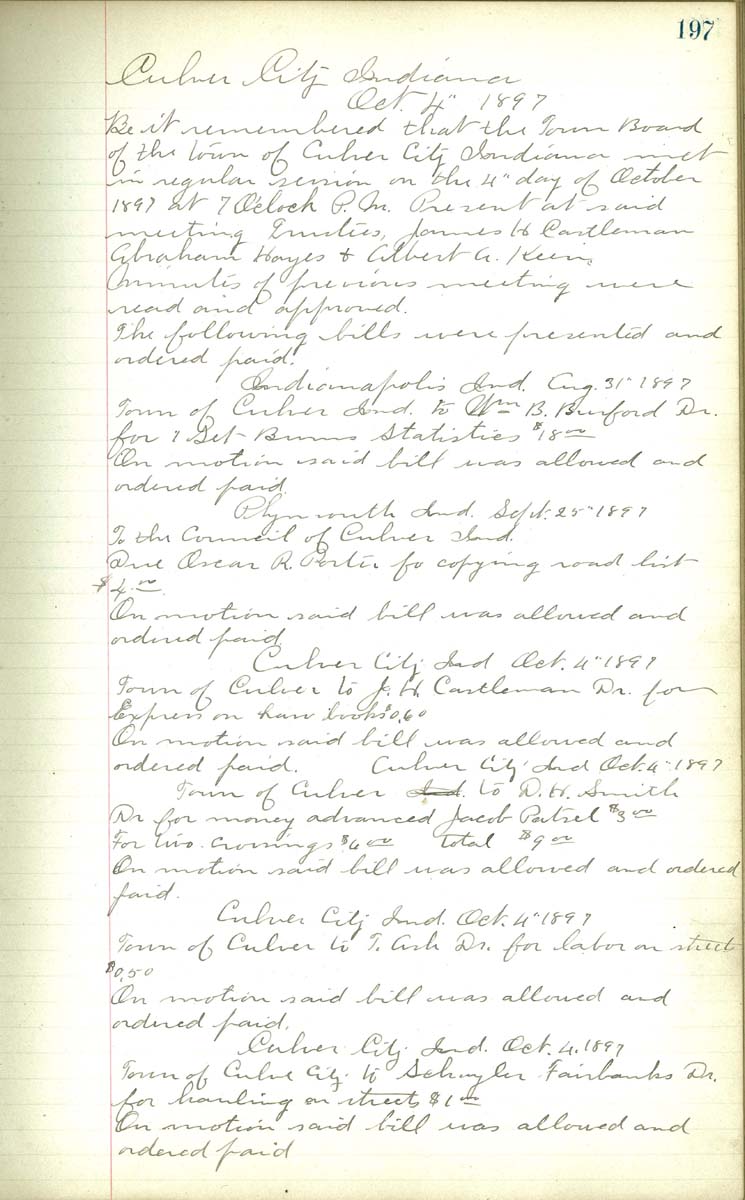 197
Culver City Indiana
Oct. 4" 1897
Be it remembered that the Town Board
of the town of Culver City Indiana met
in regular session on the 4" day of October
1897 at 7 Oclock P. M. Present at said
meeting Trustees, James H Castleman
Abraham Hayes & Albert A. Keen,
minutes of previous meeting were
read and approved.
The following bills were presented and
ordered paid.
Indianapolis Ind. Aug. 31" 1897
Town of Culver Ind. to Wm B. Burford Dr.
for 1 Set Burns Statisties $18 00
On motion said bill was allowed and
ordered paid.
Plymouth Ind. Sept. 25" 1897
To the Council of Culver Ind.
Due Oscar R. Porter fo copying road list
$4.00
On motion said bill was allowed and
ordered paid
Culver City Ind Oct. 4" 1897
Town of Culver to J. H. Castleman Dr. for
Express on books $0.60
On motion said bill was allowed and
ordered paid. Culver City Ind Oct. 4" 1897
Town of Culver Ind. to D. H. Smith
Dr for money advanced Jacob $3 00
For two crossings $6 00 total $9 00
On motion said bill was allowed and ordered
paid.
Culver City Ind. Oct. 4" 1897
Town of Culver to T. Ash Dr. for labor on street
$0.50
On motion said bill was allowed and
ordered paid.
Culver City Ind. Oct. 4. 1897
Town of Culve City to Schuyler Fairbanks Dr.
for hauling on streets $1 00
On motion said bill was allowed and
ordered paid